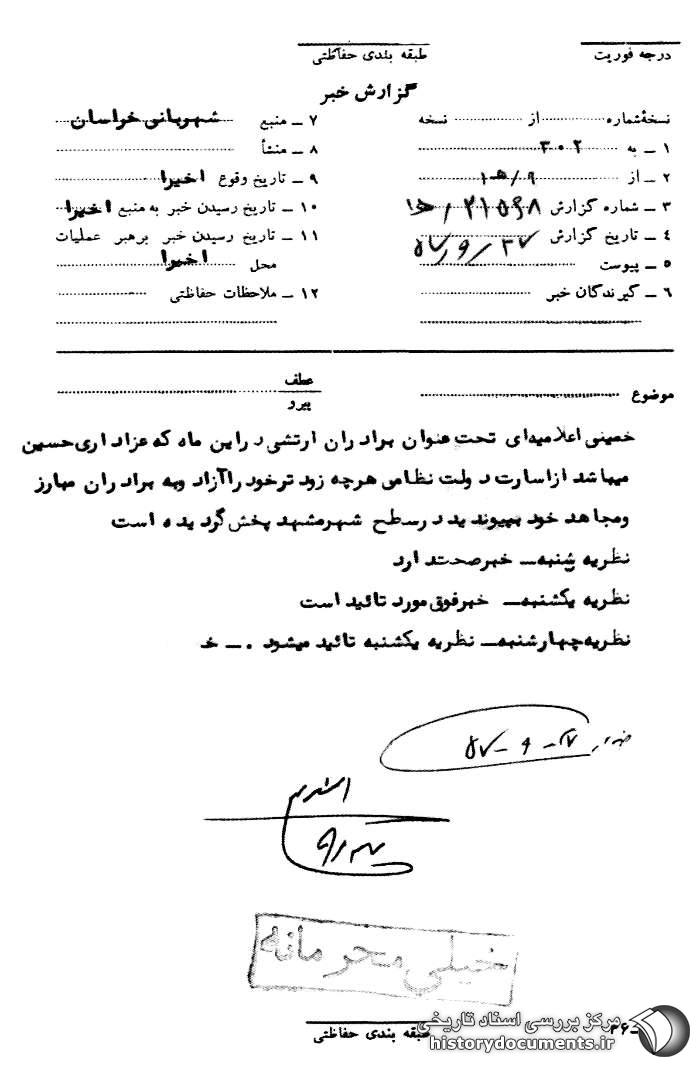 درجه فوریت
طبقه بندی حفاظتی
گزارش خبر
نسخهٔ شماره .......... از .......... نسخه
۱ ــ به ۳۰۲
۲ ــ از ۹/ه۱
۳ ــ شماره گزارش
۴ ــ تاریخ گزارش ۲۷/۹/۵۷
۵ ــ پیوست
۶ ــ گیرندگان خبر
۷ ــ منبع شهربانی خراسان
۸ ــ منشأ
۹ ــ تاریخ وقوع اخیرا
۱۰ ــ تاریخ رسیدن خبر به منبع اخیرا
۱۱ ــ تاریخ رسیدن خبر برهبر عملیات
محل اخیرا
۱۲ ــ ملاحظات حفاظتی
موضوع
عطف
پیرو
خمینی اعلامیه‌ای تحت عنوان برادران ارتشی در این ماه که عزاداری حسین
میباشد از اسارت دولت نظامی هرچه زودتر خود را آزاد و به برادران مبارز
و مجاهد خود بپیوندید در سطح شهر مشهد پخش گردیده است
نظریه شنبه ــ خبر صحت دارد
نظریه یکشنبه ــ خبر فوق مورد تائید است
نظریه چهارشنبه ــ نظریه یکشنبه تائید میشود . ــ خ
۲۷ – ۹ – ۵۷
خیلی محرمانه
طبقه بندی حفاظتی
مرکز بررسی اسناد تاریخی
historydocuments.ir